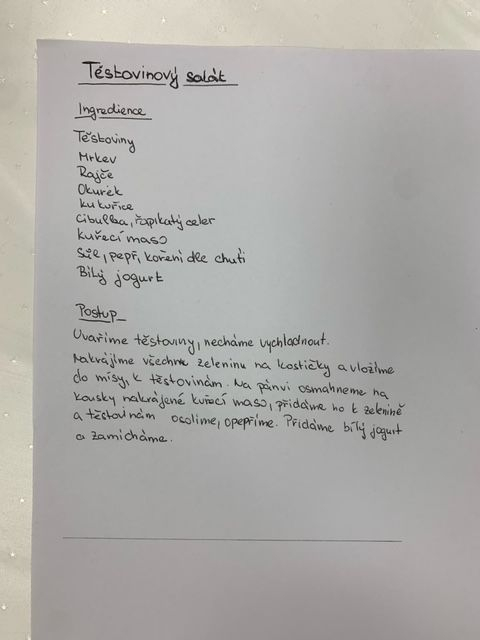 Těstovinový salát
Ingredience
Těstoviny
Mrkev
Rajče
Okurek
kukuřice
cibulka, řapíkatý celer
kuřecí maso
Sůl, pepř, koření dle chuti
Bílý jogurt
Postup
Uvaříme těstoviny, necháme vychladnout.
Nakrájíme všechnu zeleninu na kostičky a vložíme
do mísy, k těstovinám. Na pánvi osmahneme na
kousky nakrájené kuřecí maso, přidáme ho k zelenině
a těstovinám osolíme, opepříme. Přidáme bílý jogurt
a zamícháme.